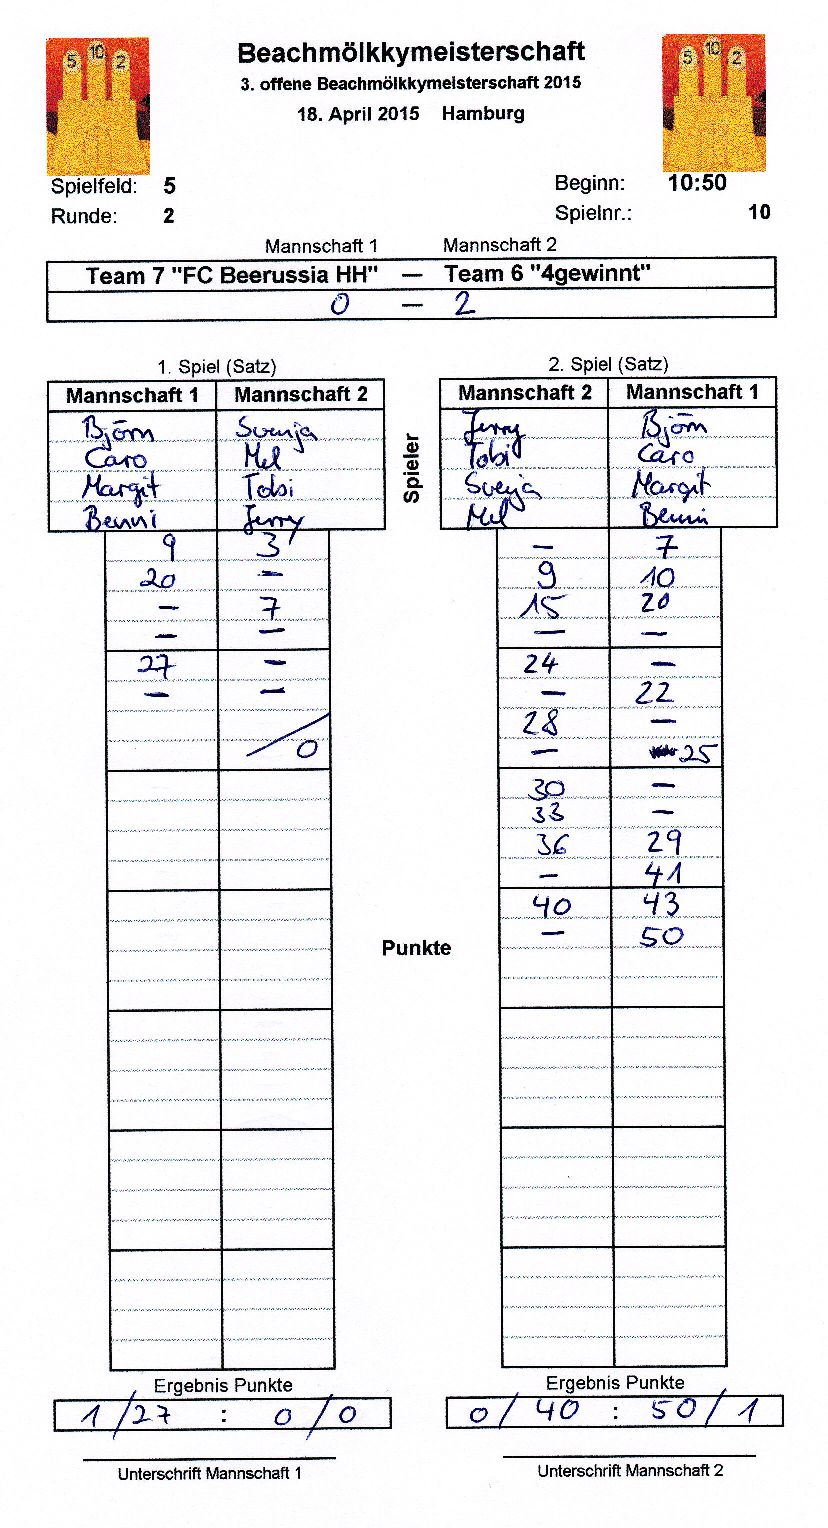 5 10 2
5 10 2
Beachmölkkymeisterschaft
3. offene Beachmölkkymeisterschaft 2015
18. April 2015 Hamburg
Spielfeld: 5
Beginn: 10:50
Runde: 2
Spielnr.: 10
Mannschaft 1 Mannschaft 2
Team 7 "FC Beerussia HH" — Team 6 "4gewinnt"
0 — 2
1. Spiel (Satz)
Mannschaft 1 Mannschaft 2
Björn Svenja
Caro Mel
Margit Tobi
Benni Jerry
9 3
20 —
— 7
— —
27 —
— —
0
Spieler
Punkte
2. Spiel (Satz)
Mannschaft 2 Mannschaft 1
Jerry Björn
Tobi Caro
Svenja Margit
Mel Benni
— 7
9 10
15 20
— —
24 —
— 22
28 —
— 25
30 —
33 —
36 29
— 41
40 43
— 50
Ergebnis Punkte
1/27 : 0/0
Unterschrift Mannschaft 1
Ergebnis Punkte
0/40 : 50/1
Unterschrift Mannschaft 2